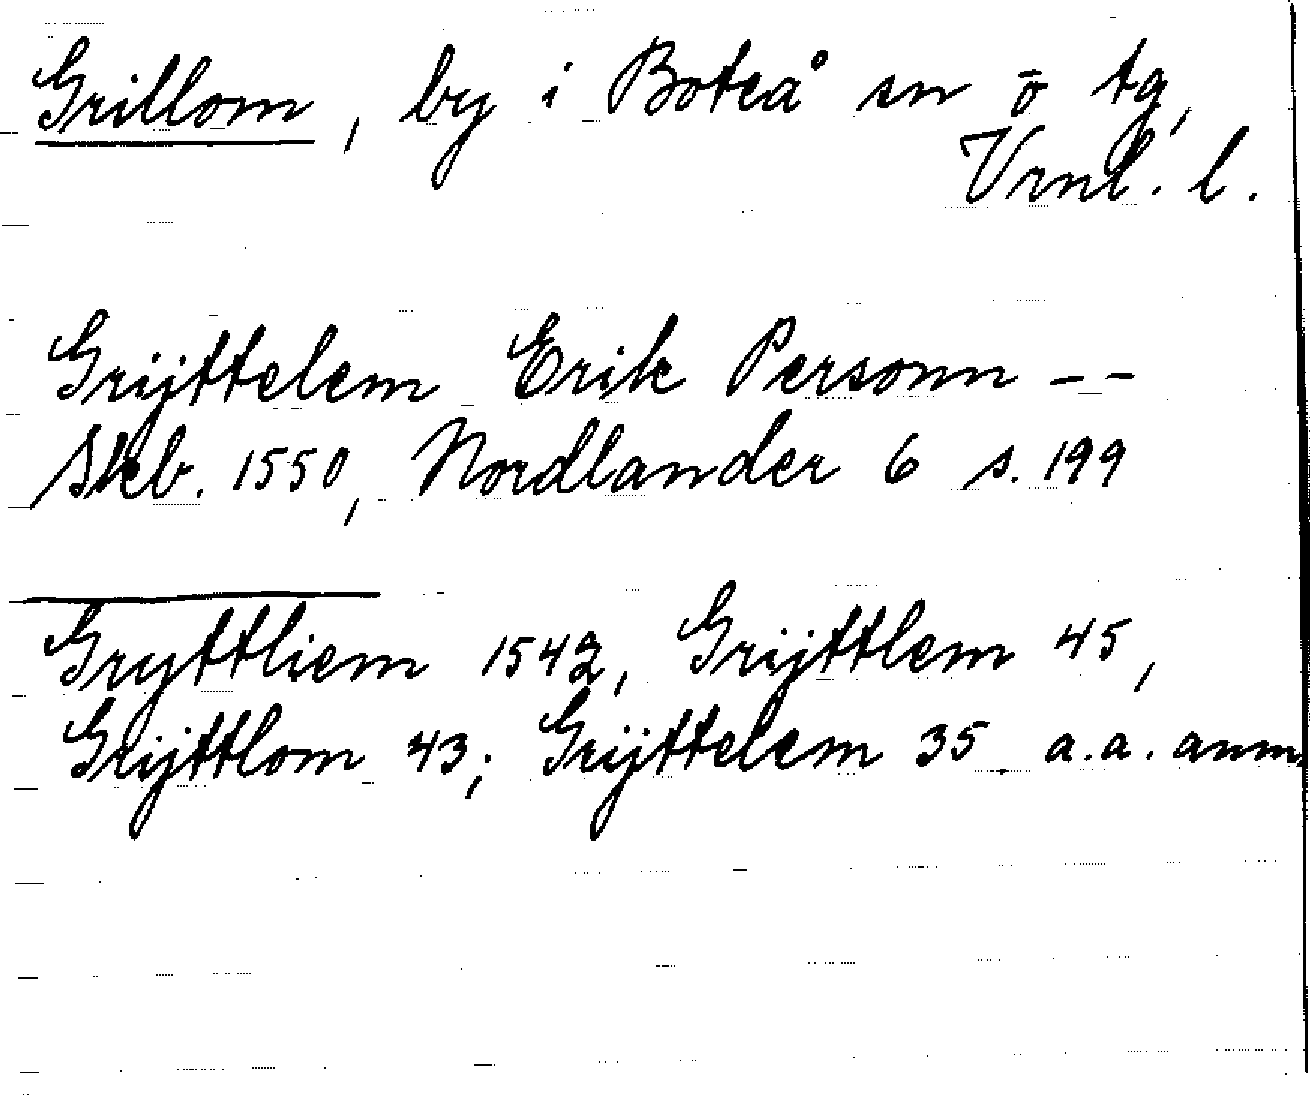 Grillom, by i Boteå sn ö tg,
Vrnl. l.
Grijttelem Erik Personn --
Skb. 1550, Nordlander 6 s. 199
Gryttliem 1542, Grijttlem 45,
Grijttlom 43; Grijttelem 35 a.a. anm.